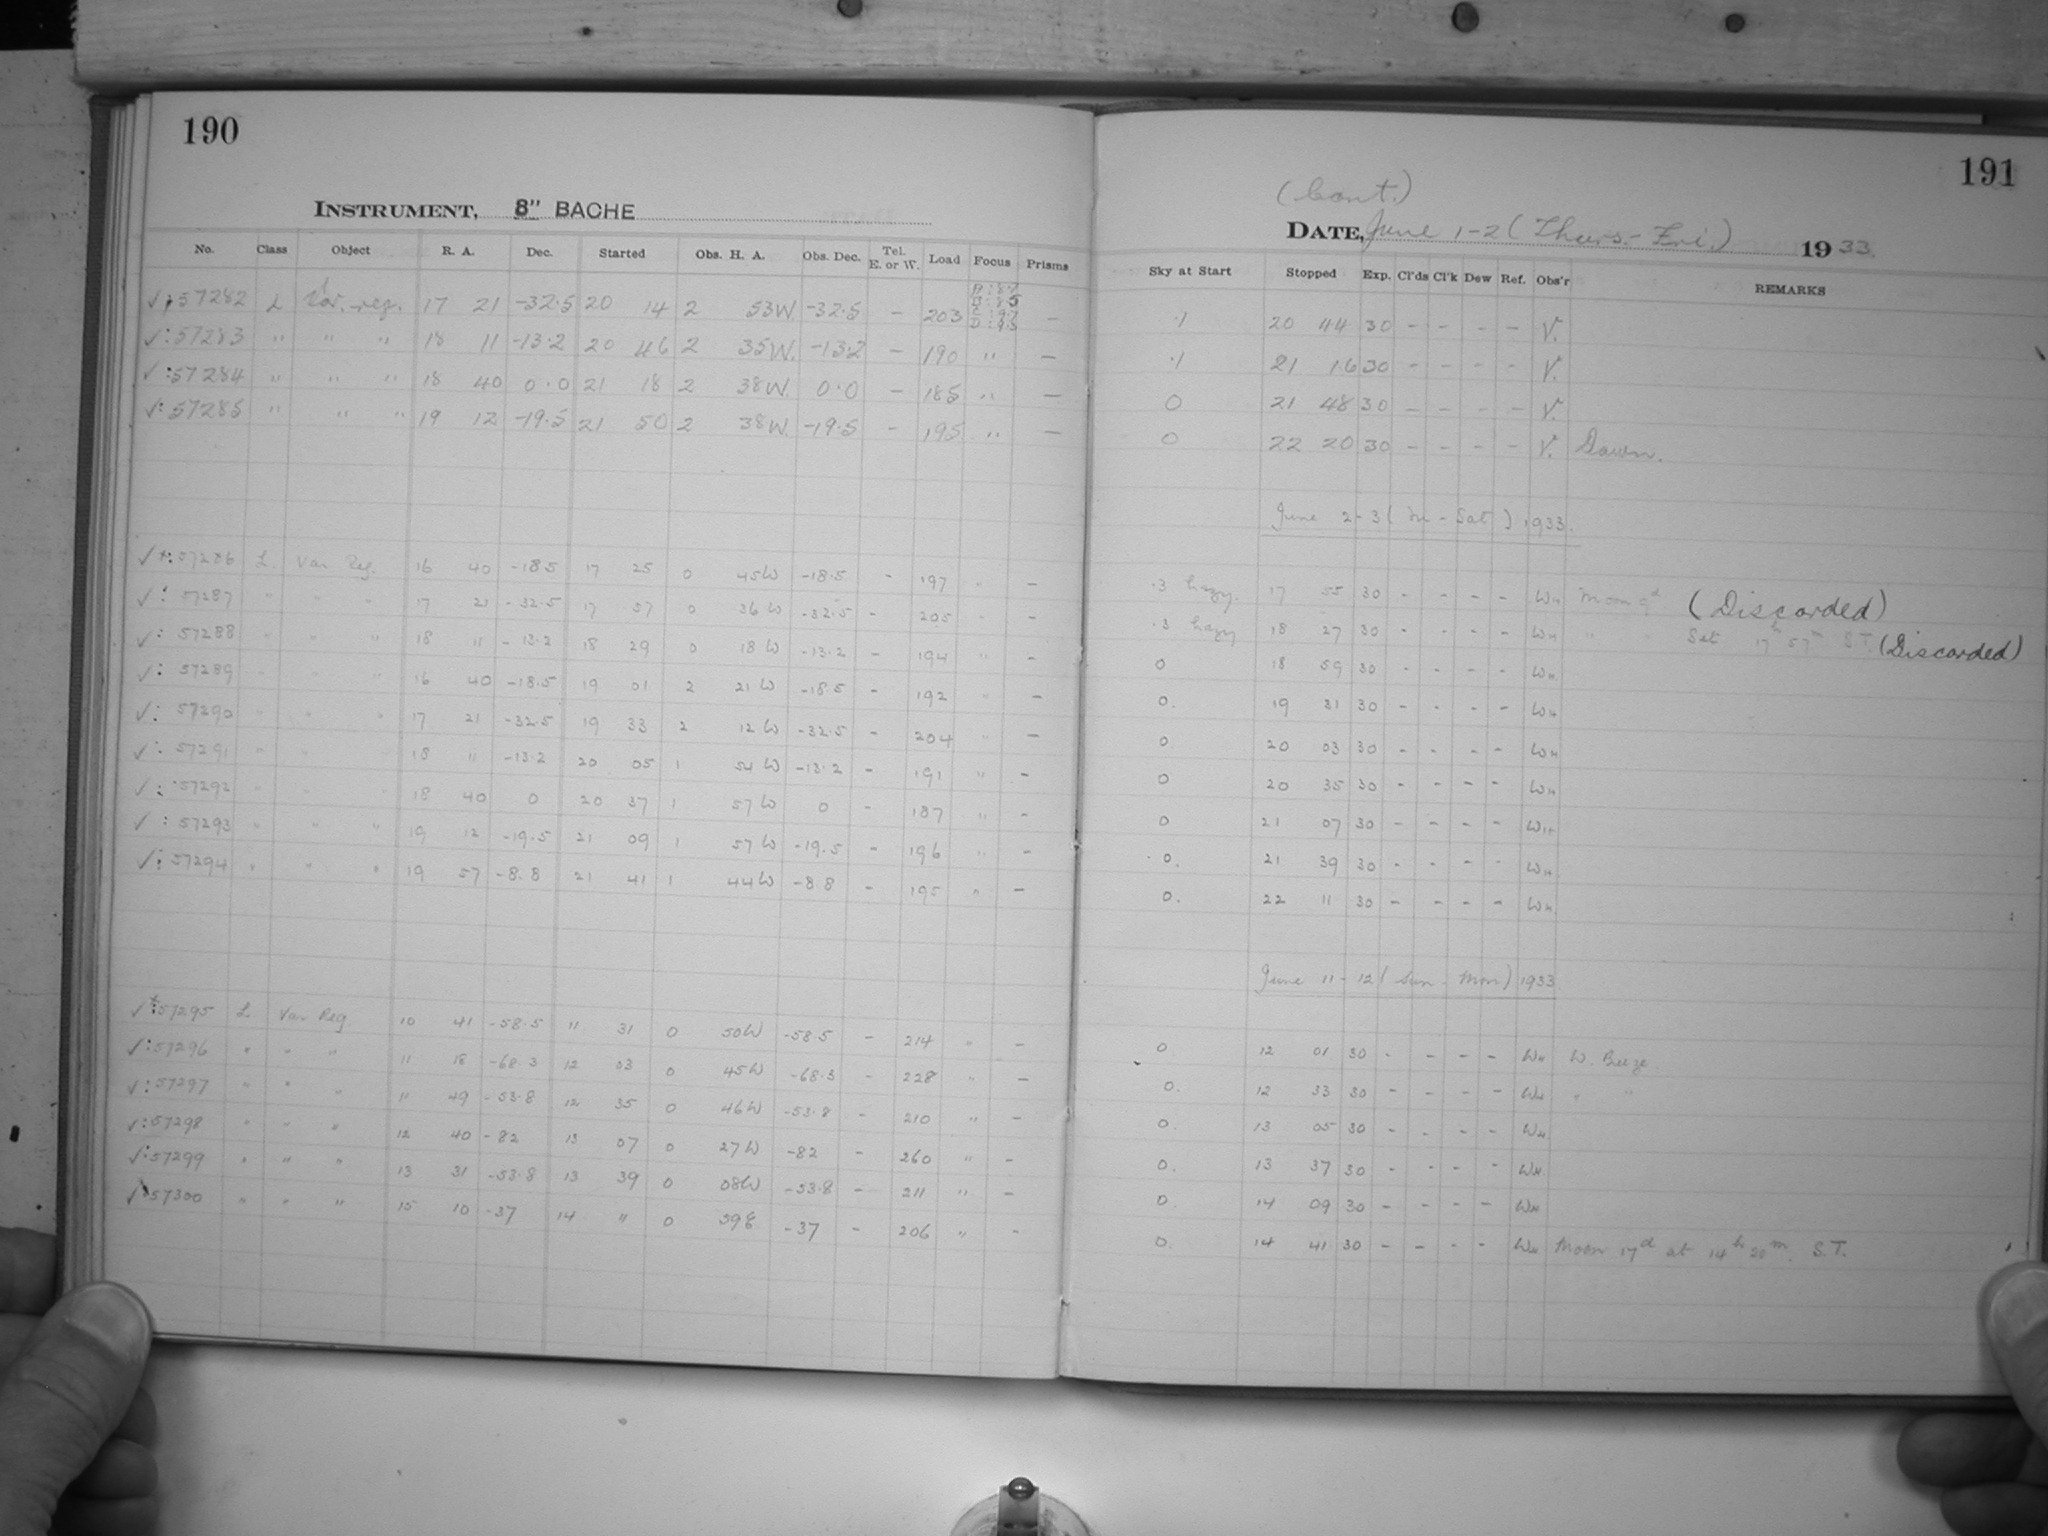 190
INSTRUMENT, 8" BACHE
No. Class Object R. A. Dec. Started Obs. H. A. Obs. Dec. Tel. E. or W. Load Focus Prisms
57282 L Var. reg. 17 21 -32.5 20 14 2 53W -32.5 - 203 -
57283 " " " 18 11 -13.2 20 46 2 35W. -13.2 - 190 " -
57284 " " " 18 40 0.0 21 18 2 38W. 0.0 - 185 " -
57285 " " " 19 12 -19.5 21 50 2 38W. -19.5 - 195 " -
57286 L. Var Reg. 16 40 -18.5 17 25 0 45W -18.5 - 197 " -
57287 " " " 17 21 -32.5 17 57 0 36W -32.5 - 205 " -
57288 " " " 18 11 -13.2 18 29 0 18W -13.2 - 194 " -
57289 " " " 16 40 -18.5 19 01 2 21W -18.5 - 192 " -
57290 " " " 17 21 -32.5 19 33 2 12W -32.5 - 204 " -
57291 " " " 18 11 -13.2 20 05 1 54W -13.2 - 191 " -
57292 " " " 18 40 0 20 37 1 57W 0 - 187 " -
57293 " " " 19 12 -19.5 21 09 1 57W -19.5 - 196 " -
57294 " " " 19 57 -8.8 21 41 1 44W -8.8 - 195 " -
57295 L. Var Reg. 10 41 -58.5 11 31 0 50W -58.5 - 214 " -
57296 " " " 11 18 -68.3 12 03 0 45W -68.3 - 228 " -
57297 " " " 11 49 -53.8 12 35 0 46W -53.8 - 210 " -
57298 " " " 12 40 -82 13 07 0 27W -82 - 260 " -
57299 " " " 13 31 -53.8 13 39 0 08W -53.8 - 211 " -
57300 " " " 15 10 -37 14 11 0 -37 - 206 " -
191
(Cont.)
DATE, June 1-2 (Thurs.-Fri.) 1933.
Sky at Start Stopped Exp. Cl'ds Cl'k Dew Ref. Obs'r REMARKS
.1 20 44 30 - - - - V.
.1 21 16 30 - - - - V.
0 21 48 30 - - - - V.
0 22 20 30 - - - - V. Dawn.
June 2-3 (Fri - Sat) 1933.
.3 hazy. 17 55 30 - - - - WH Moon 9d (Discarded)
.3 hazy 18 27 30 - - - - WH " " Set 17h 57m S.T. (Discarded)
0 18 59 30 - - - - WH
0. 19 31 30 - - - - WH
0 20 03 30 - - - - WH
0 20 35 30 - - - - WH
0 21 07 30 - - - - WH
0. 21 39 30 - - - - WH
0. 22 11 30 - - - - WH
June 11-12 (Sun - Mon) 1933
0 12 01 30 - - - - WH W. Breeze
0. 12 33 30 - - - - WH " "
0. 13 05 30 - - - - WH
0. 13 37 30 - - - - WH
0. 14 09 30 - - - - WH
0. 14 41 30 - - - - WH Moon 17d at 14h 20m. S.T.